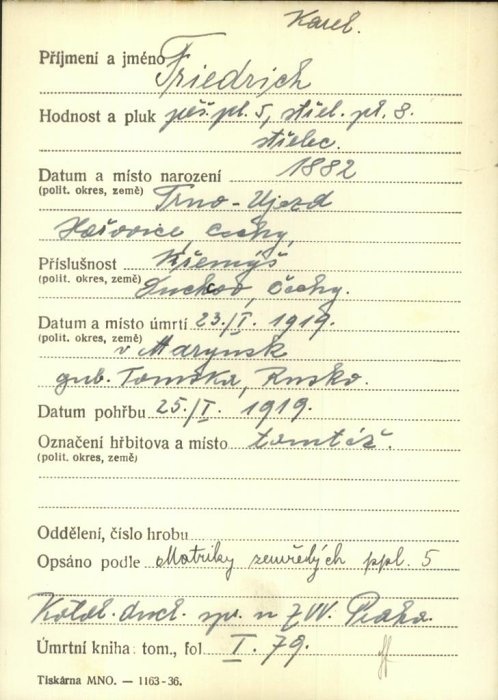 Karel.
Příjmení a jméno Friedrich
Hodnost a pluk pěš. pl. 5, střel. pl. 8.
střelec.
Datum a místo narození 1882
(polit. okres, země) Trno-Ujezd
Hořovice, Čechy,
Příslušnost Křemýš
(polit. okres, země) Duchcov, Čechy.
Datum a místo úmrtí 23./I. 1919.
(polit. okres, země) v Marynsk
gub. Tomska, Rusko.
Datum pohřbu 25./I. 1919.
Označení hřbitova a místo tamtéž.
(polit. okres, země)
Oddělení, číslo hrobu
Opsáno podle Matriky zemřelých ppl. 5
Katol. duch. sp. u ZVV. Praha.
Úmrtní kniha: tom., fol. I. 79.
Tiskárna MNO. — 1163-36.